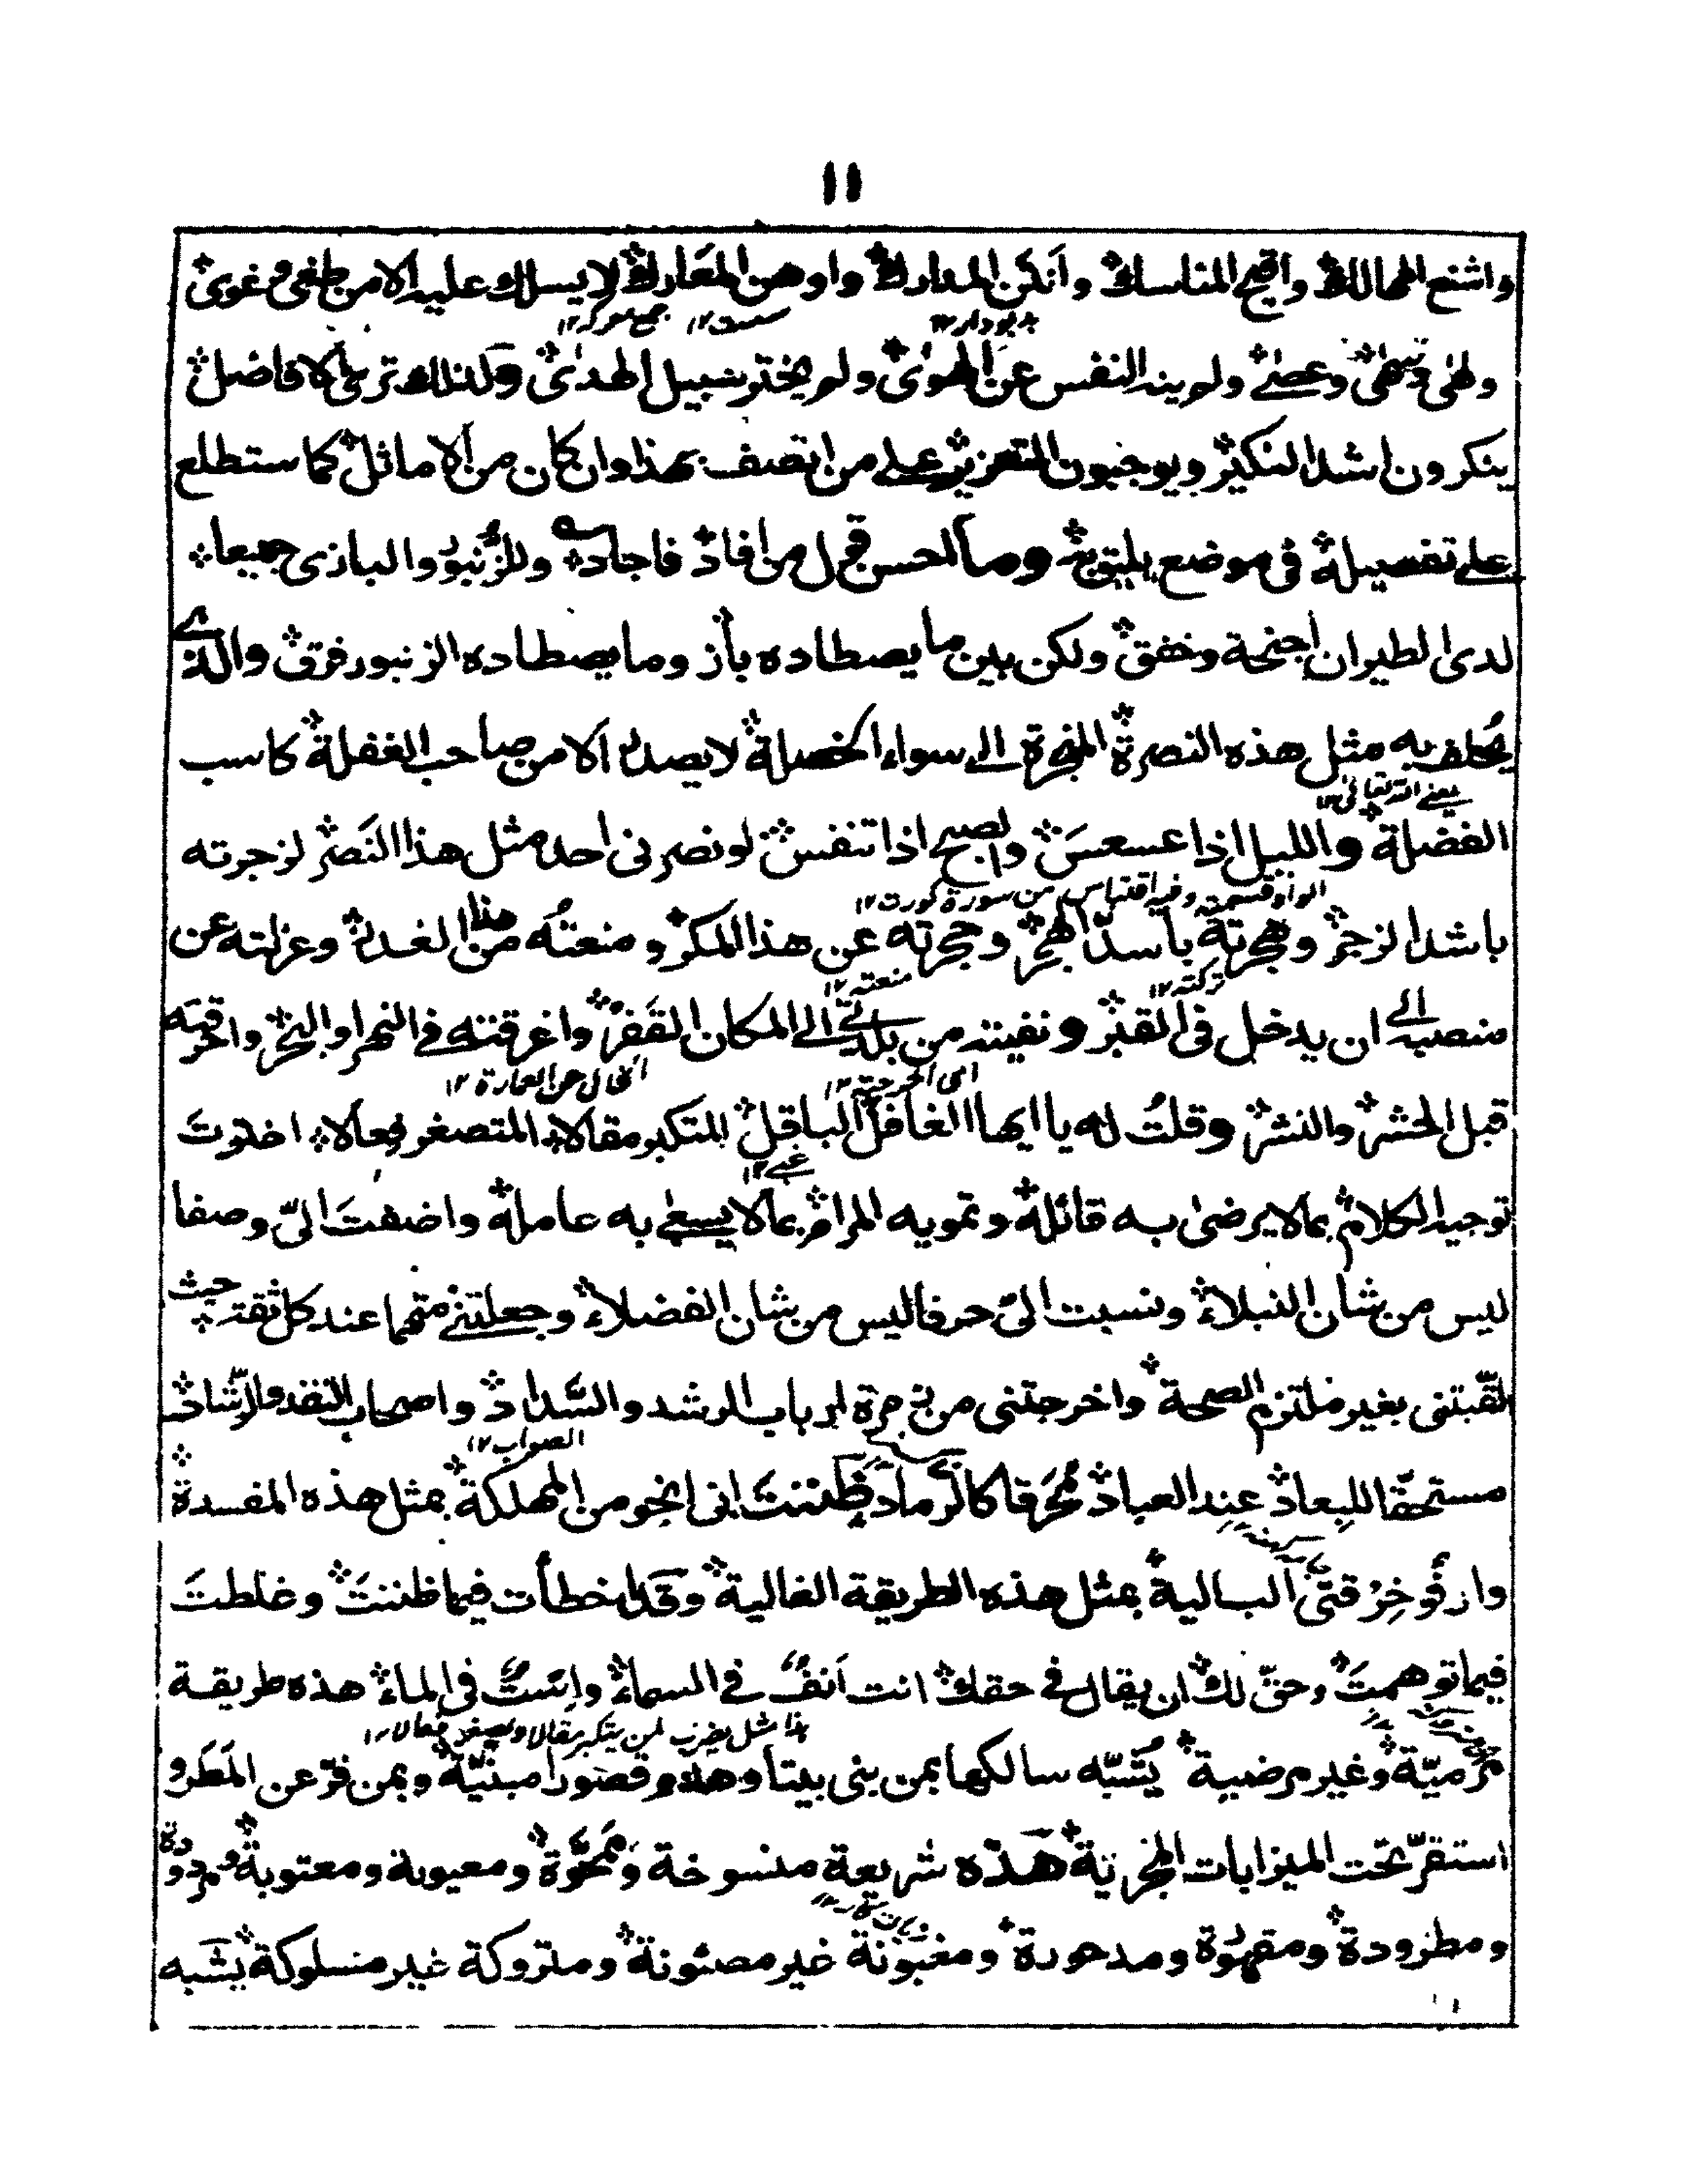 ١١
واشنع المهالك واقبح المناسك وانكن المدارك واوهن المعارك لا يسلك عليه الا من طغى وغوى
بدبودار ١٢ سست ١٢ جمع معركه ١٢
ولهى وسهى وعصى ولم ينه النفس عن الهوى ولم يختر سبيل الهدى ولذلك ترى الافاضل
ينكرون اشد النكير ويوجبون التعزير على من اتصف بهذا وان كان من الاماثل كما ستطلع
على تفصيله فى موضع يليق به وما احسن قول من افاد فاجاد وللزُنبور والبازى جميعا
لدى الطيران اجنحة وخفق ولكن بين ما يصطاده باز وما يصطاده الزنبور فرق والذى
يُحلف به مثل هذه النصرة المنجرة الى سواء الخصلة لا يصدر الا من صاحب الغفلة كاسب
يعنى الله تعالى ١٢
الفضلة والليل اذا عسعسَ والصبح اذا تنفس لو نصرنى احد مثل هذا النَصر لزجرته
الواو قسمية وفيه اقتباس من سورة كورت ١٢
باشد الزجر وهجرته باسدّ الهجر وحجرته عن هذا المكر ومنعتُه من هذا الغدر وعزلته عن
تركته ١٢ منعته ١٢
منصبه الى ان يدخل فى القبر ونفيته من بلدتى الى المكان القَفر واغرقته فى النهر او البحر واحرقته
اى اخرجته ١٢ الخالى عن العمارة ١٢
قبل الحشر والنشر وقلتُ له يا ايها الغافل الباقل المتكبر مقالا المتصغر فعالا اخلوتَ
غبى ١٢
توجيه الكلام بما لا يرضى به قائله وتمويه المرام بما لا يسعى به عامله واضفتَ الىّ وصفا
ليس من شان النبلاء ونسبت الىّ حرفا ليس من شان الفضلاء وجعلتنى متهما عند كل ثقة حيث
لقّبتنى بغير ملتزم الصحة واخرجتنى من زمرة ارباب الرشد والسَّداد واصحاب النقد والرَّشاد
الصواب ١٢
مستحقّا للبِعاد عند العباد مُحَرقا كالرَماد ظننتَ انى انجو من المهلكة بمثل هذه المفسدة
وارفُو خِرْقتى البالية بمثل هذه الطريقة الغالية وقد اخطأت فيما ظننتَ وغلطتَ
فيما توهمتَ وحقّ لك ان يقال فى حقك انت اَنفٌ فى السماء واِستٌ فى الماء هذه طريقة
هذا مثل يضرب لمن يتكبر مقالا ويصغر فعالا ١٢
مرميّة وغير مرضية يُشَبّه سالكها بمن بنى بيتا وهدم قصورا مبنيّة وبمن فرّ عن المَطَر و
استقرّ تحت الميزابات المجرية هذه شريعة منسوخة ومَمحُوّة ومعيوبة ومعتوبة ومردودة
ومطرودة ومقهورة ومدحورة ومغبونة غير مصئونة ومتروكة غير مسلوكة يشبه